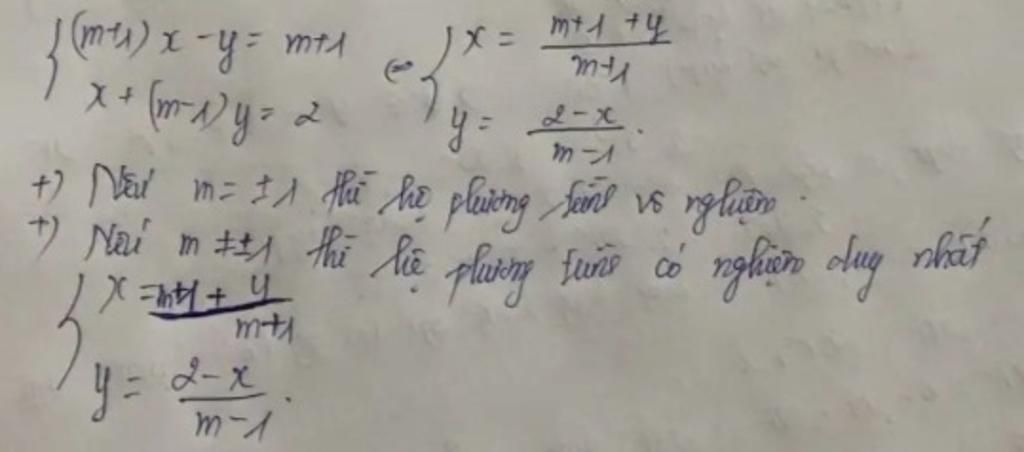 { (m+1) x - y = m+1 ⇔ { x = (m+1+y)/(m+1)
x + (m-1) y = 2 y = (2-x)/(m-1).
+) Nếu m = ±1 thì hệ phương trình vô nghiệm.
+) Nếu m ≠ ±1 thì hệ phương trình có nghiệm duy nhất
{ x = (m+1+y)/(m+1)
y = (2-x)/(m-1).